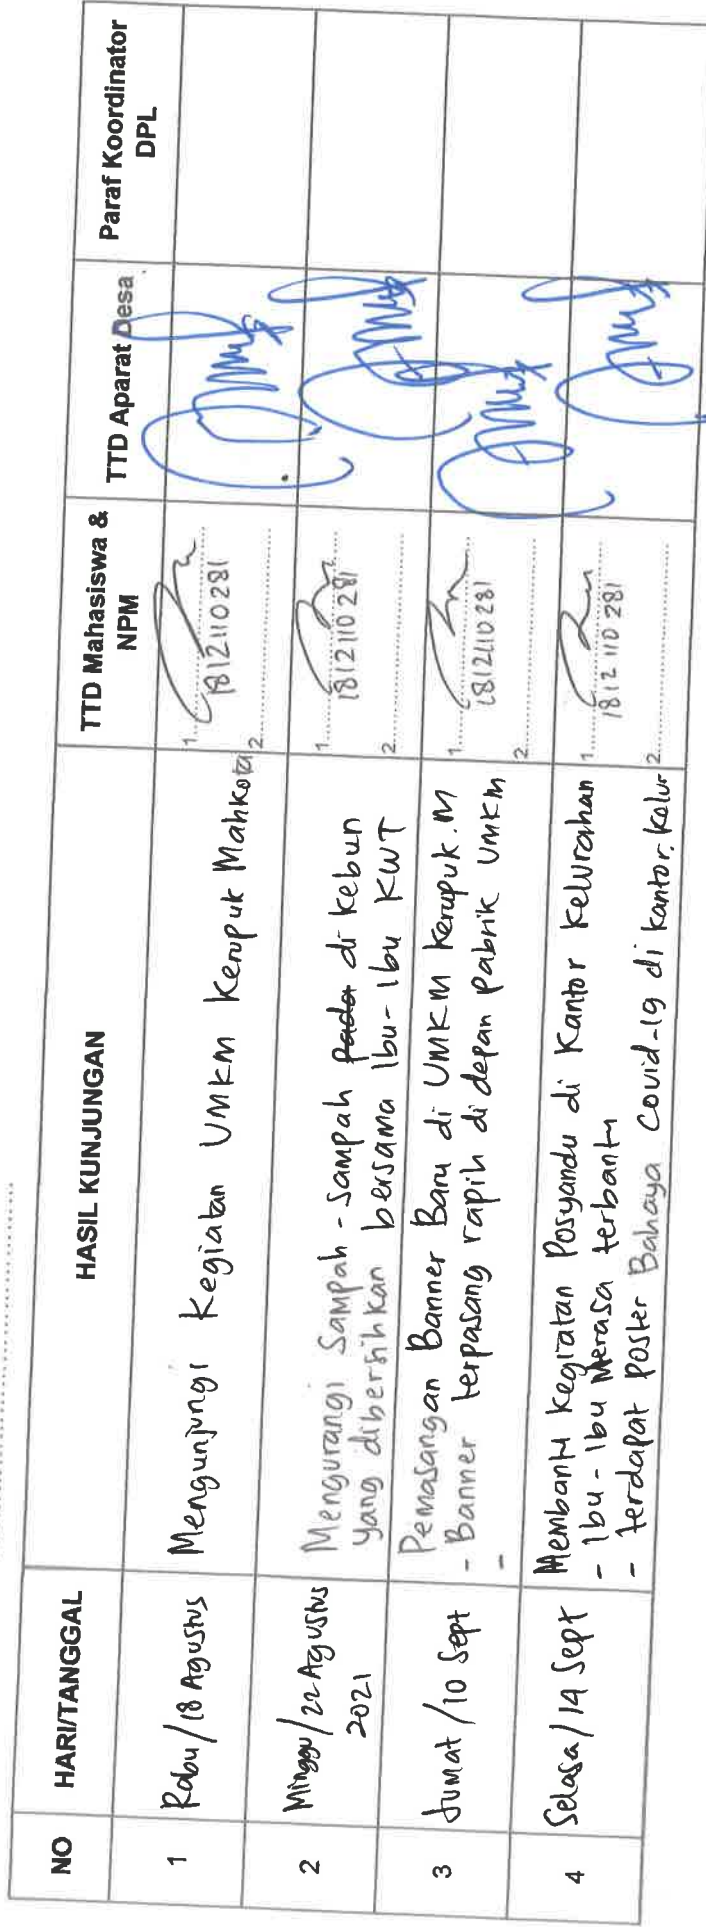 NO HARI/TANGGAL HASIL KUNJUNGAN TTD Mahasiswa & NPM TTD Aparat Desa Paraf Koordinator DPL
1 Rabu/18 Agustus Mengunjungi Kegiatan UMKM Kerupuk Mahkota 1. 1812110281
2.
2 Minggu/22 Agustus 2021 Mengurangi Sampah-Sampah pada di kebun 1. 1812110281
yang dibersihkan bersama Ibu-Ibu KWT 2.
3 Jumat/10 Sept Pemasangan Banner Baru di UMKM Kerupuk.M 1. 1812110281
- Banner terpasang rapih di depan Pabrik UMKM 2.
-
4 Selasa/14 Sept Membantu Kegiatan Posyandu di Kantor Kelurahan 1. 1812110281
- Ibu-Ibu Merasa terbantu 2.
- terdapat Poster Bahaya Covid-19 di Kantor. Kelur